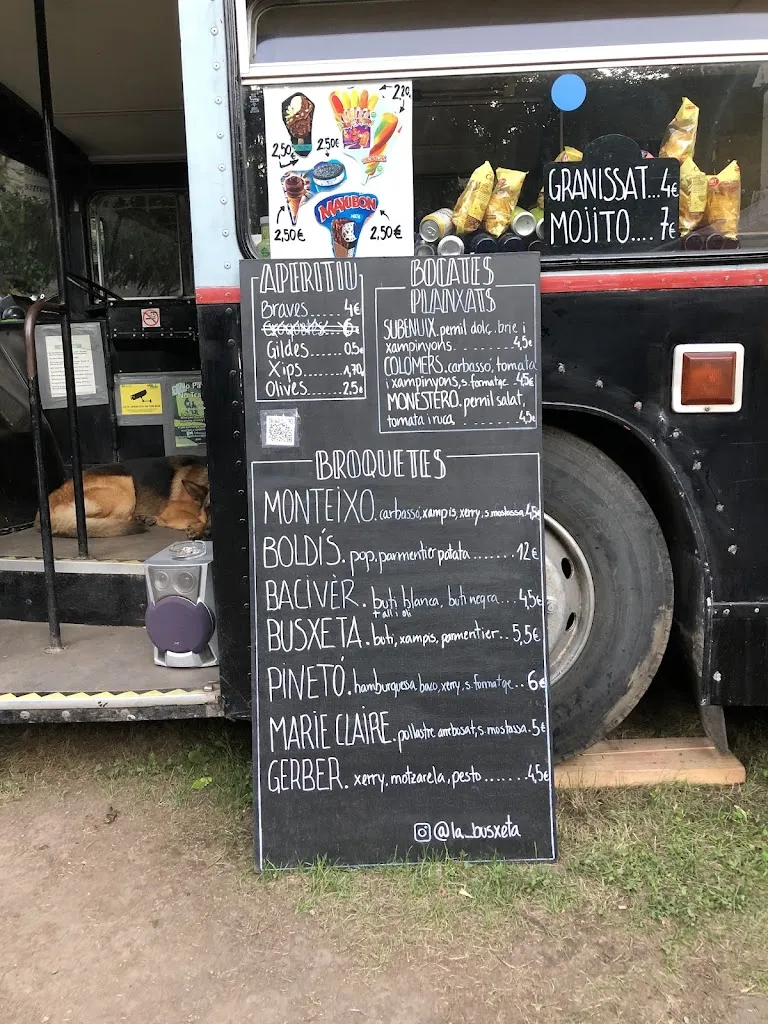 2,20.
2,50
2,50€
MAXIBON
NATA
2,50€
2,50€
GRANISSAT...4€
MOJITO....7€
APERITIU
Braves......4€
Croquetes...6€
Gildes......0.5€
Xips........1,70€
Olives......2,5€
BOCATES
PLANXATS
SUBENUIX.pernil dolç, brie i
xampinyons........4,5€
COLOMERS.carbassó, tomata
i xampinyons, s.formatge. 4,5€
MONESTERO.pernil salat,
tomata i ruca........4,5€
BROQUETES
MONTEIXO.carbassó, xampis, xerry, s.mostassa 4,5€
BOLDÍS. pop, parmentier patata.......12€
BACIVÈR. buti blanca, buti negra...4,5€
+ all i oli
BUSXETA. buti, xampis, parmentier..5,5€
PINETÓ. hamburguessa, baco, xerry, s.formatge..6€
MARIE CLAIRE. pollastre arrebosat, s.mostassa.5€
GERBER. xerry, motzarela, pesto.......4,5€
@la_busxeta